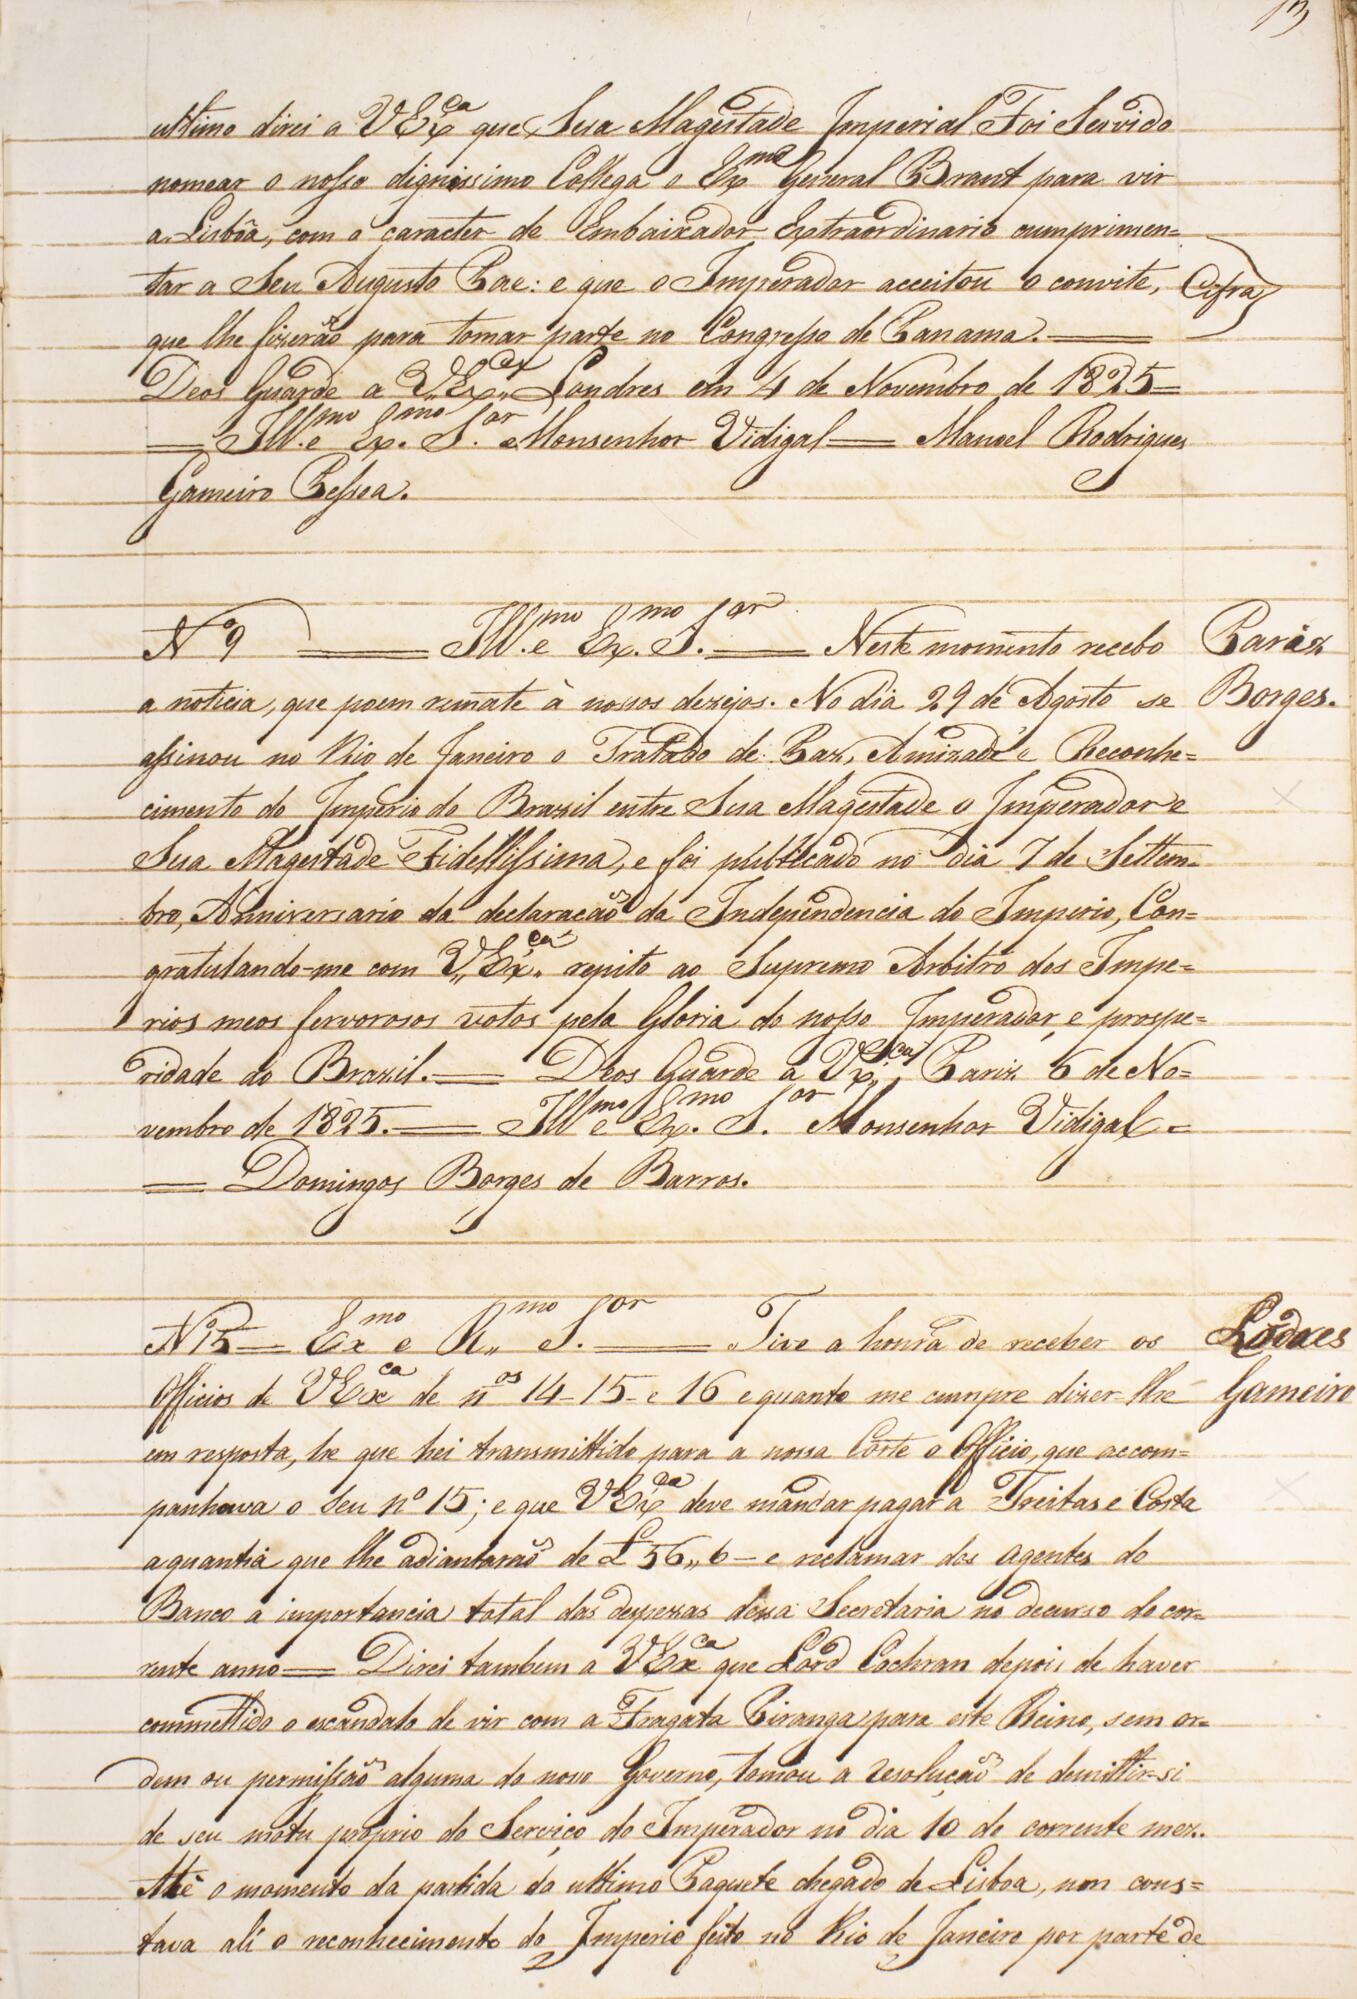 13
ultimo direi a VEx.ca que Sua Magestade Imperial Foi Servido
nomear o nosso dignissimo Collega o Ex.mo General Brant para vir
a Lisbôa, com o caracter de Embaixador Extraordinario cumprimen=
tar a Seu Augusto Pae: e que o Imperador acceitou o convite,
Cifra
que lhe fizerão para tomar parte no Congresso de Panama.
Deos Guarde a V.Ex.ca Londres em 4 de Novembro de 1825=
= Ill.mo e Ex.mo S.or Monsenhor Vidigal = Manoel Rodrigues
Gameiro Pessoa.
Nº 9 = Ill.mo e Ex.mo S.or = Neste momento recebo
Paris
a noticia, que poem remate à nossos dezejos. No dia 29 de Agosto se
Borges.
assinou no Rio de Janeiro o Tratado de Paz, Amizade e Reconhe=
cimento do Imperio do Brazil entre Sua Magestade o Imperador e
Sua Magestade Fidellissima, e foi publicado no dia 7 de Settem=
bro, Anniversario da declaracaõ da Independencia do Imperio, Con=
gratulando-me com V.Ex.ca repito ao Supremo Arbitro dos Impe=
rios meos fervorosos votos pela Gloria do nosso Imperador, e prospe=
ridade do Brazil. = Deos Guarde a VEx.ca Pariz 6 de No=
vembro de 1825. = Ill.mo e Ex.mo S.or Monsenhor Vidigal =
= Domingos Borges de Barros.
Nº 15 = Ex.mo e R.mo S.or = Tive a honra de receber os
Lodres
Officios de VEx.ca de n.os 14-15- e 16 e quanto me cumpre dizer-lhe
Gameiro
em resposta, he que hei transmittido para a nossa Corte o Officio, que accom=
panhava o Seu nº 15; e que VEx.ca deve mandar pagar a Freitas e Costa
a quantia que lhe adiantaraõ de £56,,6- e reclamar dos agentes do
Banco a importancia total das despezas dessa Secretaria no decurso do cor=
rente anno = Direi tambem a VEx.ca que Lord Cochran depois de haver
commettido o escandalo de vir com a Fragata Piranga para este Reino, sem or=
dem ou permissaõ alguma do nosso Governo, tomou a resoluçaõ de demittir-si
de seu motu proprio do Serviço do Imperador no dia 10 do corrente mez.
Athé o momento da partida do ultimo Paquete chegado de Lisboa, non cons=
tava ali o reconhecimento do Imperio feito no Rio de Janeiro por parte de